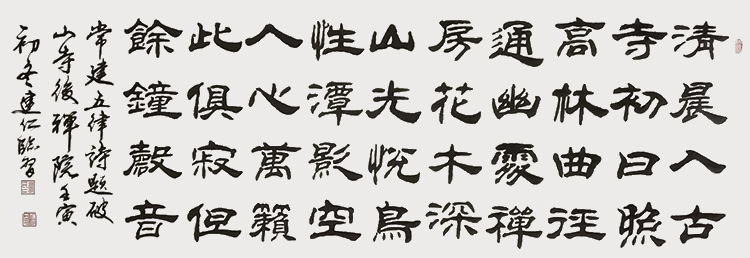 清晨入古
寺初日照
高林曲徑
通幽處禪
房花木深
山光悦鳥
性潭影空
人心萬籟
此俱寂但
餘鐘磬音
常建五律詩題破
山寺後禪院壬寅
初冬建仁臨習